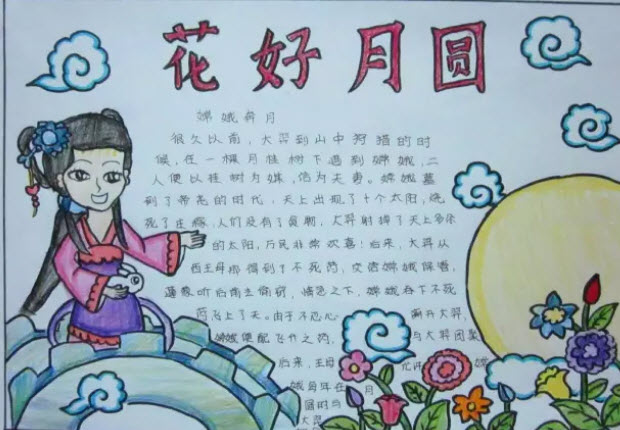 花好月圆
嫦娥奔月
很久以前，大羿到山中狩猎的时
候，在一棵月桂树下遇到嫦娥，二
人便以桂树为媒，结为夫妻。嫦娥
到了帝尧的时代，天上出现了十个太阳，烧
死了庄稼，人们没有了食物，大羿射掉了天上多余
的太阳，万民非常欢喜；后来，大羿从
西王母那得到了不死药，交给嫦娥保管，
逢蒙听后前去偷窃，情急之下，嫦娥吞下不死
药飞上了天。由于不忍心 离开大羿，
嫦娥 飞升之药， 与大羿团聚
后来，王母 允许 嫦
娥每年在 月
圆时与
大羿